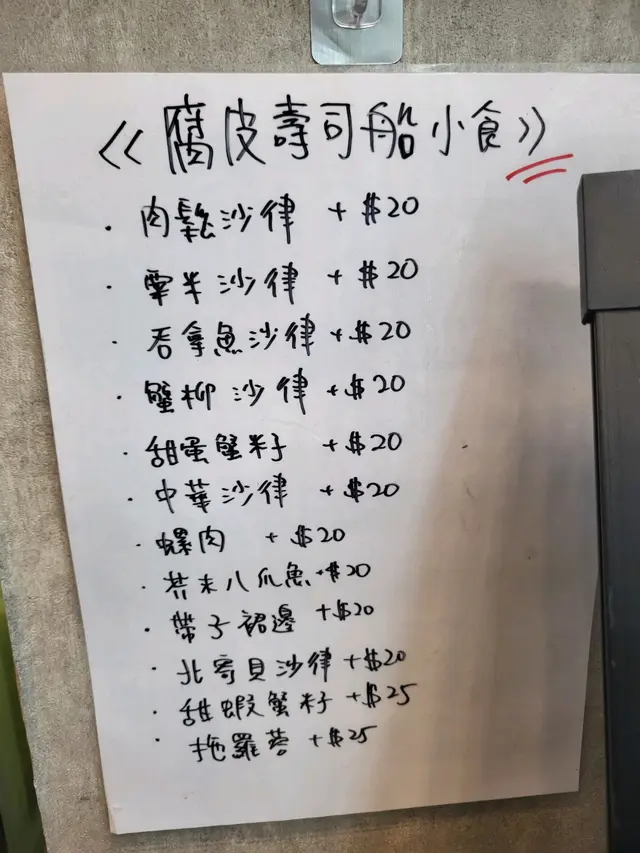 《腐皮壽司船小食》
· 肉鬆沙律 + $20
· 粟半沙律 + $20
· 吞拿魚沙律 + $20
· 蟹柳沙律 + $20
· 甜蛋蟹籽 + $20
· 中華沙律 + $20
· 螺肉 + $20
· 芥末八爪魚 + $20
· 帶子裙邊 + $20
· 北寄貝沙律 + $20
· 甜蝦蟹籽 + $25
· 拖羅蓉 + $25